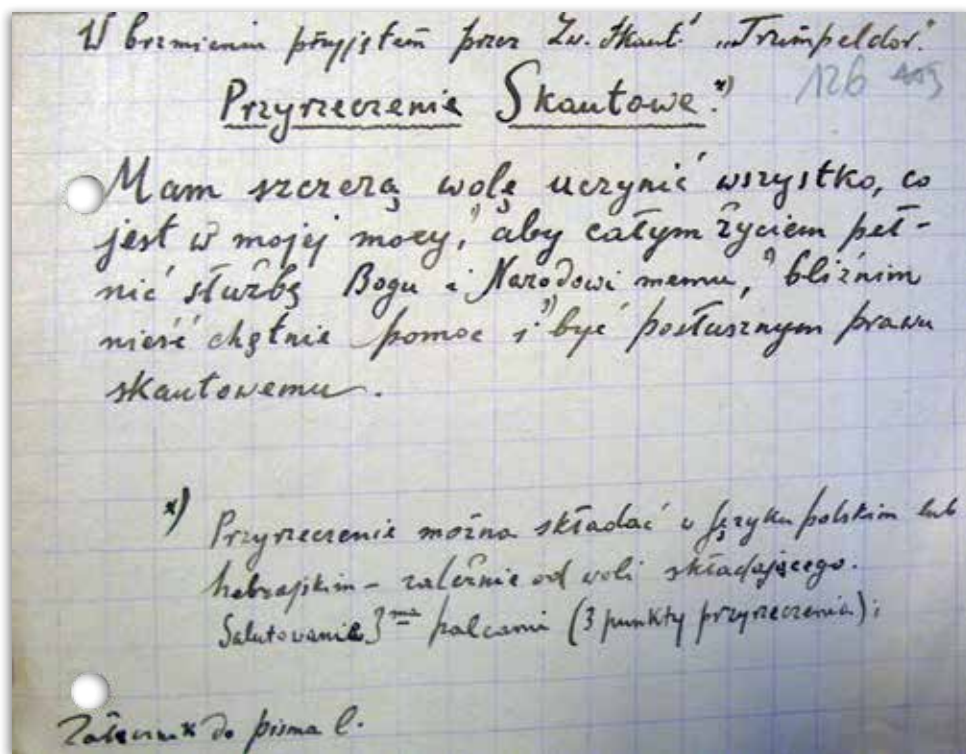 W brzmieniu przyjętem przez Zw. Skaut. „Trumpeldor".
126 113
Przyrzeczenie Skautowe.*)
Mam szczerą wolę uczynić wszystko, co
jest w mojej mocy,¹) aby całym życiem peł-
nić służbę Bogu i Narodowi memu,²) bliźnim
nieść chętnie pomoc i³) być posłusznym prawu
skautowemu.
*) Przyrzeczenie można składać w języku polskim lub
hebrajskim – zależnie od woli składającego.
Salutowanie 3ma palcami (3 punkty przyrzeczenia);
Załącznik do pisma l.